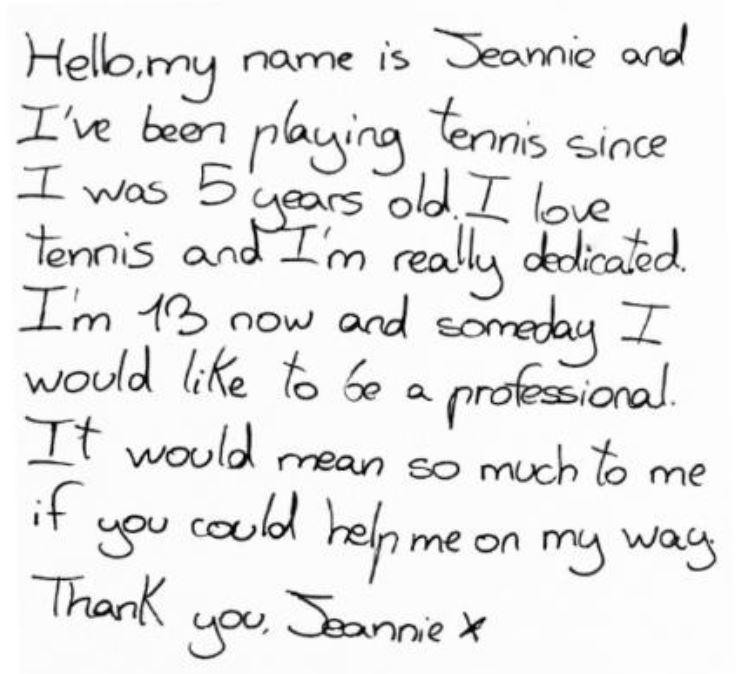 Hello, my name is Jeannie and
I've been playing tennis since
I was 5 years old. I love
tennis and I'm really dedicated.
I'm 13 now and someday I
would like to be a professional.
It would mean so much to me
if you could help me on my way.
Thank you, Jeannie x